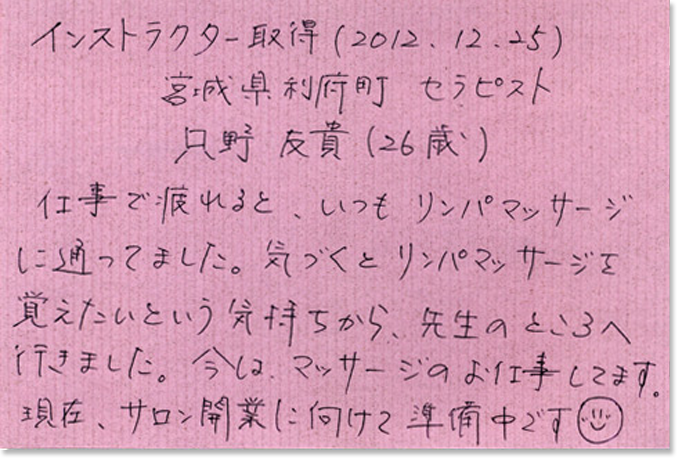 インストラクター取得(2012.12.25)
宮城県利府町 セラピスト
只野 友貴(26歳)
仕事で疲れると、いつもリンパマッサージ
に通ってました。気づくとリンパマッサージを
覚えたいという気持ちから、先生のところへ
行きました。今は、マッサージのお仕事してます。
現在、サロン開業に向けて準備中です